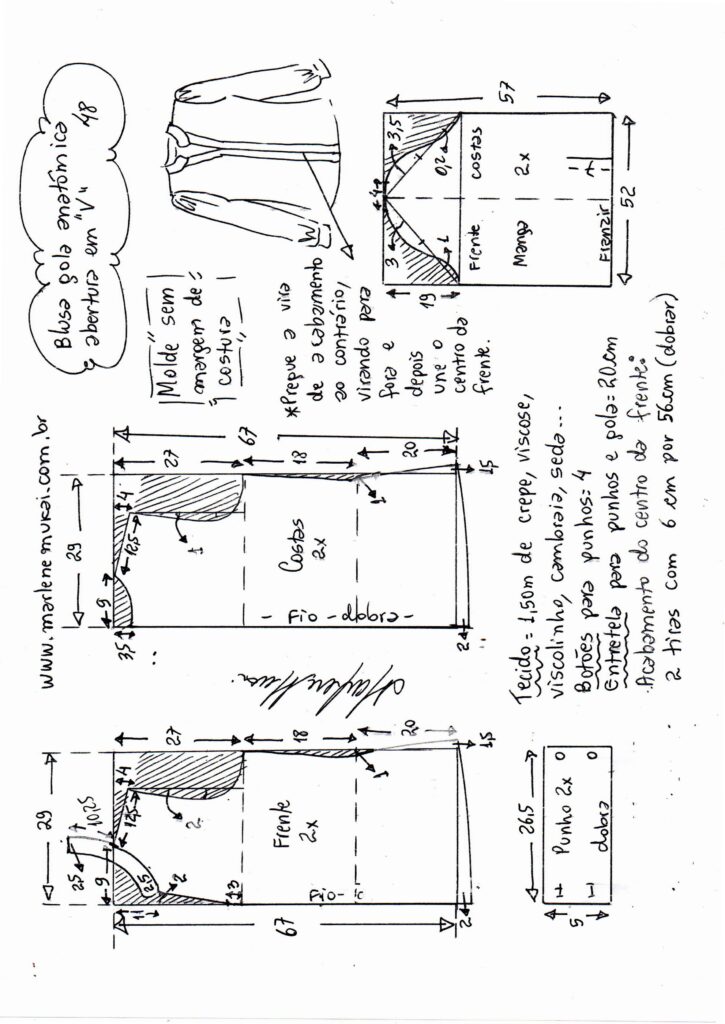 Blusa gola anatômica
abertura em "V"
48
www.marlenemukai.com.br
Molde sem
margem de
costura
*Pregue a vira
de acabamento
ao contrário,
virando para
fora e
depois
une o
centro da
frente.
29
2,5
10,25
9
4
12,5
2,5
2
2
11
3
27
18
20
67
1
1,5
2
Frente
2x
29
9
4
3,5
12,5
1
27
18
20
67
1
1,5
2
Costas
2x
- Fio - dobra -
4
3,5
3
0,2
1
19
57
52
Frente
Costas
Manga
2x
Franzir
26,5
5
Punho 2x
dobra
Tecido = 1,50m de crepe, viscose,
viscolinho, cambraia, seda...
Botões para punhos = 4
Entretela para punhos e gola = 20cm
Acabamento do centro da frente:
2 tiras com 6 cm por 56cm (dobrar)